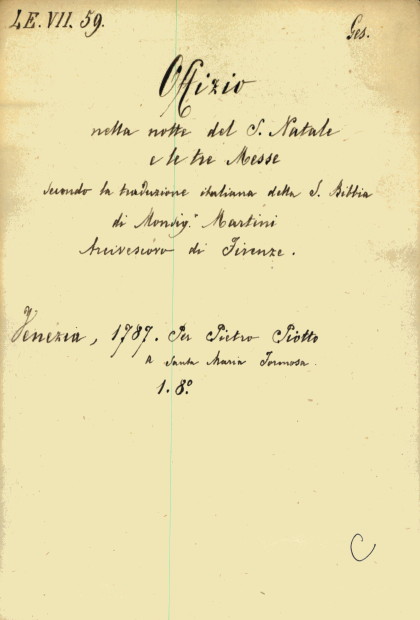 LE. VII. 59.
Ges.
Offizio
nella notte del S. Natale
e le tre Messe
secondo la traduzione italiana della S. Bibbia
di Monsig.r Martini
Arcivescovo di Firenze.
Venezia, 1787. Per Pietro Piotto
a Santa Maria Formosa.
1. 8.o
C